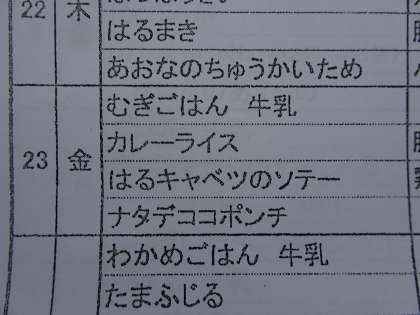 22 木
はるまき
あおなのちゅうかいため
むぎごはん 牛乳
23 金 カレーライス
はるキャベツのソテー
ナタデココポンチ
わかめごはん 牛乳
たまふじる